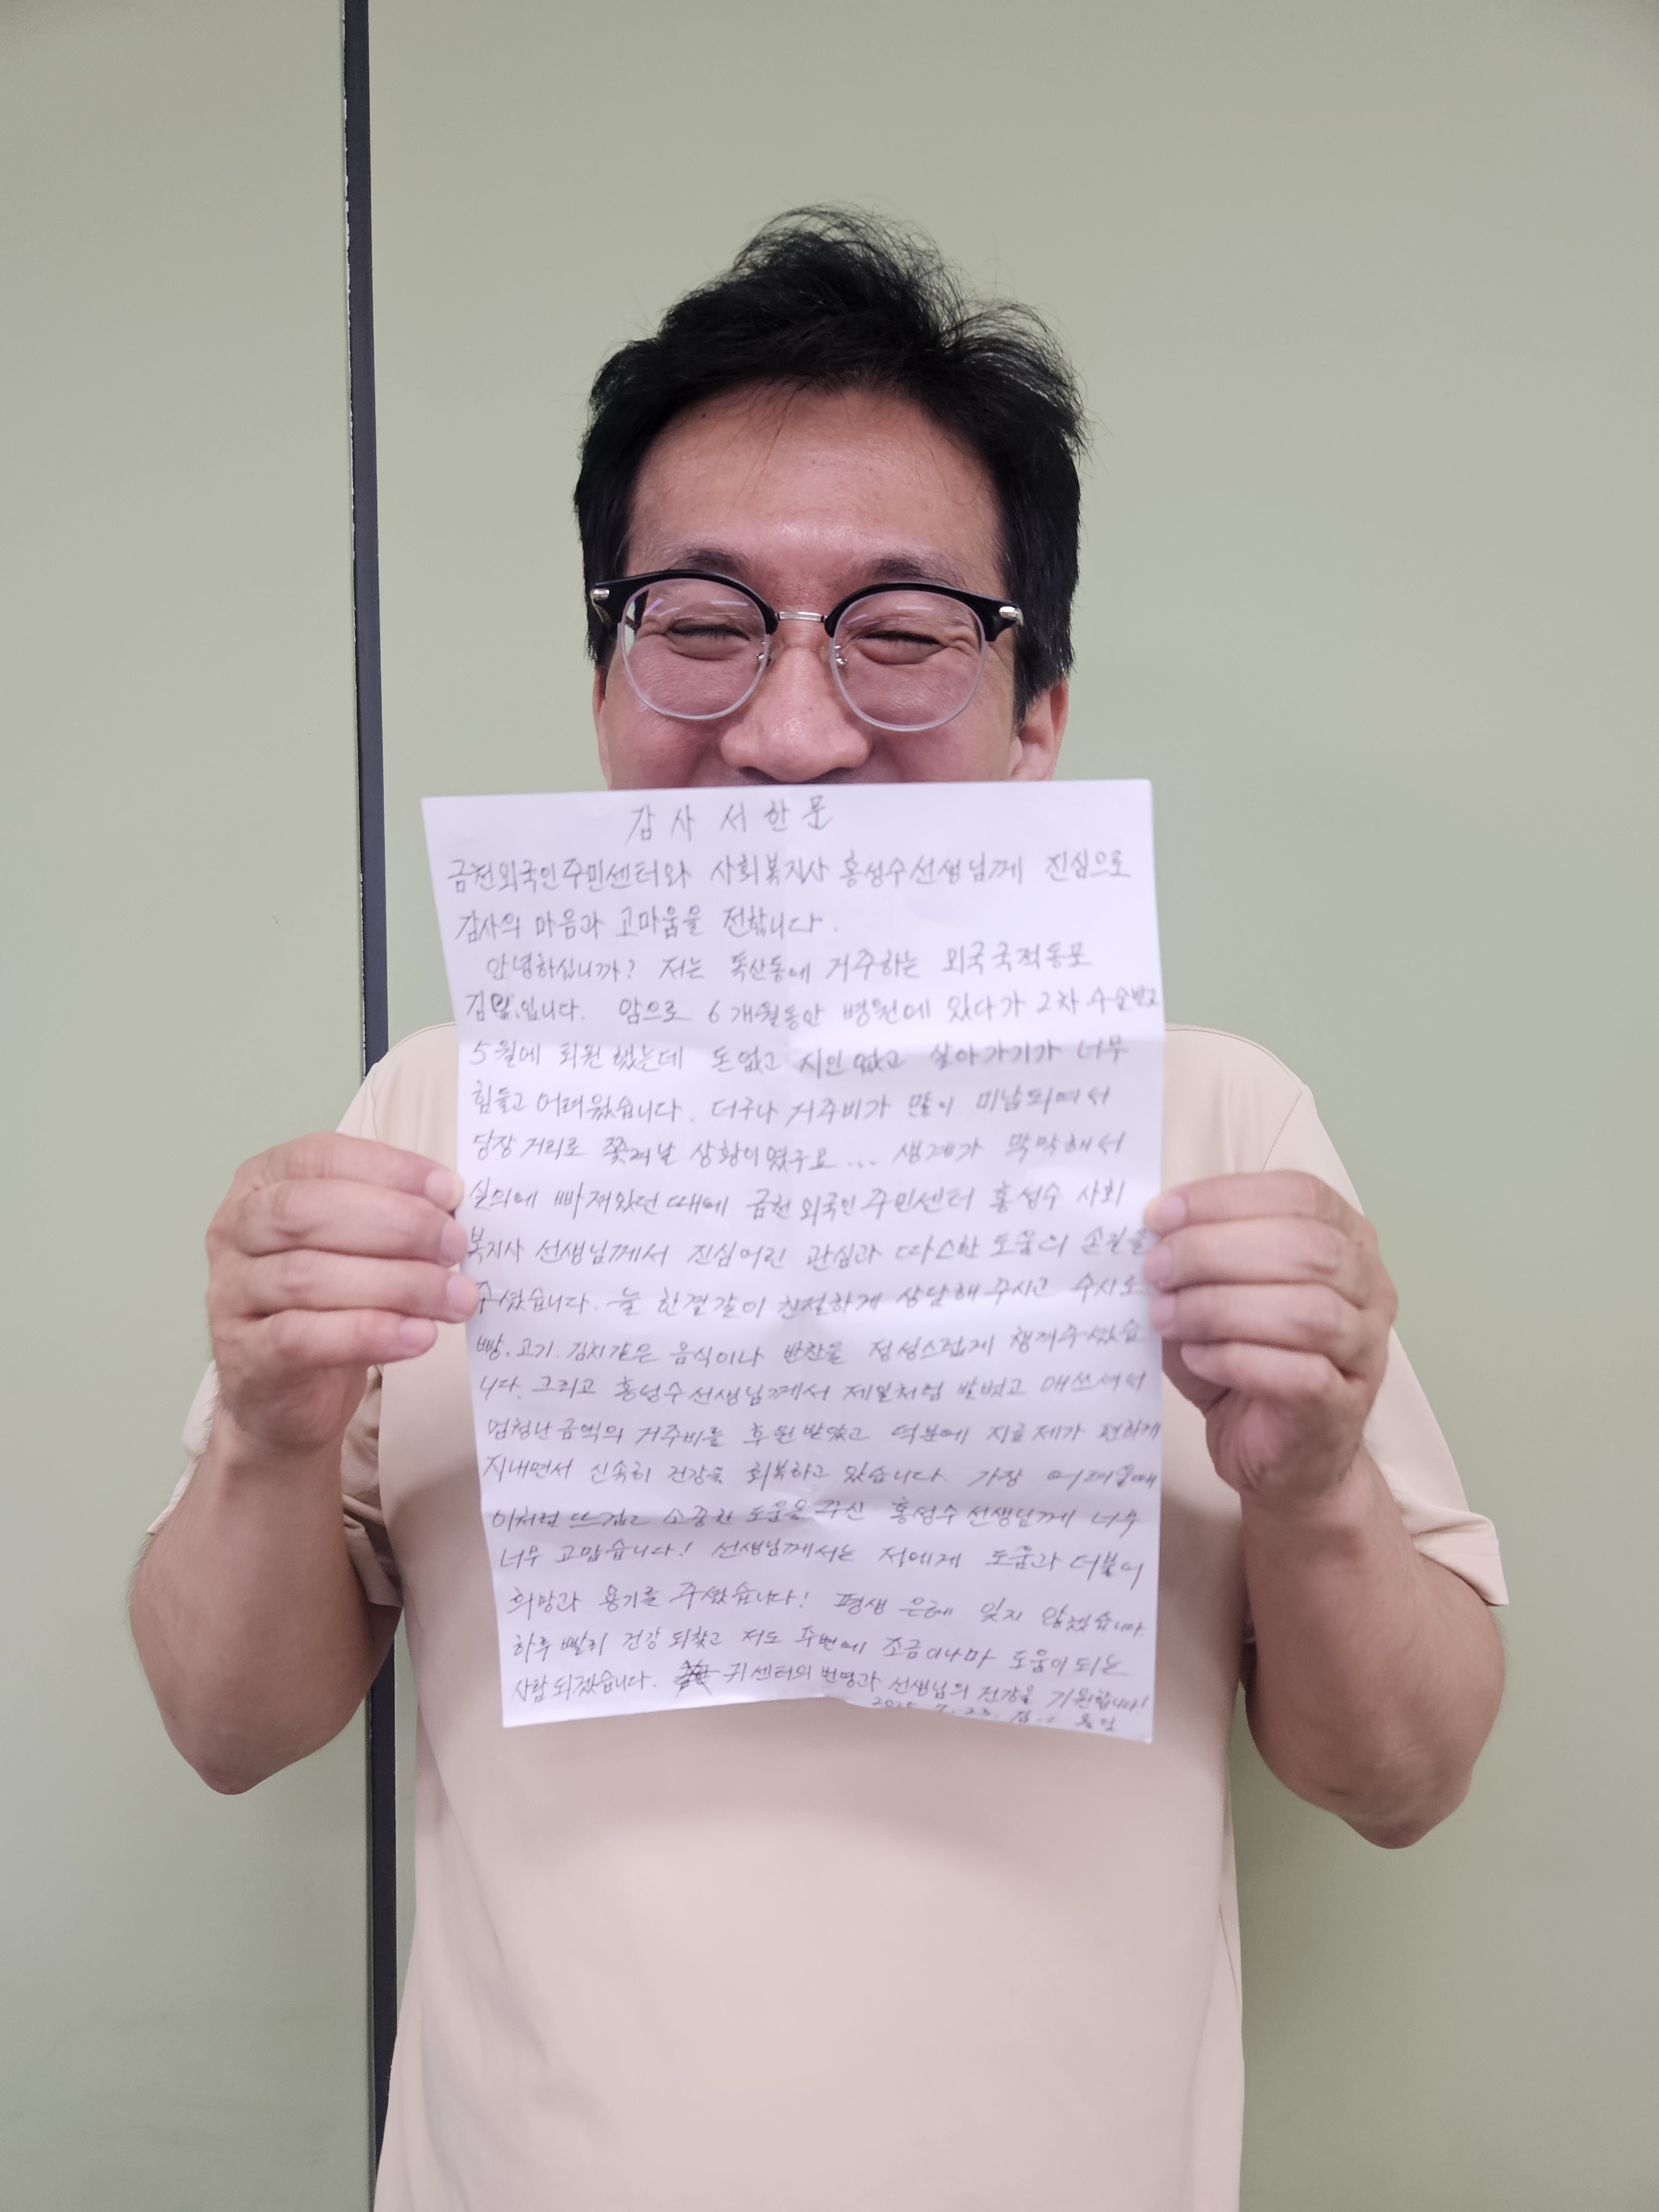 감사 서한문
금천외국인주민센터와 사회복지사 홍성수선생님께 진심으로
감사의 마음과 고마움을 전합니다.
안녕하십니까? 저는 독산동에 거주하는 외국국적동포
입니다. 암으로 6개월동안 병원에 있다가 2차 수술받고
5월에 퇴원했는데 돈없고 지인없고 살아가기가 너무
힘들고 어려웠습니다. 더구나 거주비가 많이 미납되여서
당장 거리로 쫓겨날 상황이였구요... 생계가 막막해서
실의에 빠져있던 때에 금천외국인주민센터 홍성수 사회
복지사 선생님께서 진심어린 관심과 따스한 도움의 손길을
주셨습니다. 늘 한결같이 친절하게 상담해주시고 수시로
빵. 고기. 김치같은 음식이나 반찬을 정성스럽게 챙겨주셨습
니다. 그리고 홍성수선생님께서 제일처럼 발벗고 애쓰셔서
엄청난금액의 거주비를 후원받았고 덕분에 지금 제가 편하게
지내면서 신속히 건강을 회복하고 있습니다. 가장 어려울때
이처럼 뜨겁고 소중한 도움을 주신 홍성수선생님께 너무
너무 고맙습니다! 선생님께서는 저에게 도움과 더불어
희망과 용기를 주셨습니다! 평생 은혜 잊지 않겠습니다.
하루빨리 건강 되찾고 저도 주변에 조금이나마 도움이 되는
사람되겠습니다. 귀센터의 번영과 선생님의 건강을 기원합니다!
2025. 7. 23.